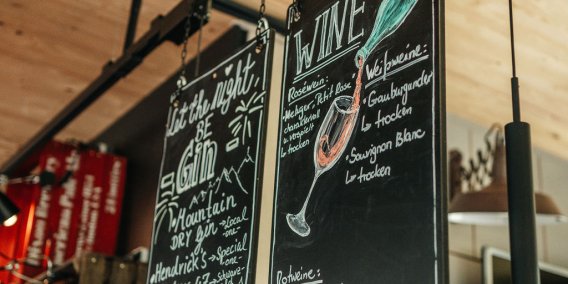 Let the Night
BE
Gin
Mountain
DRY Gin → Local
-one-
Hendrick's → Special
-one-
WINE
Roséwein:
Metzger, Petit Rose
charaktervoll
verspielt
↳ trocken
Weißweine:
Grauburgunder
↳ trocken
Sauvignon Blanc
↳ trocken
Rotweine: